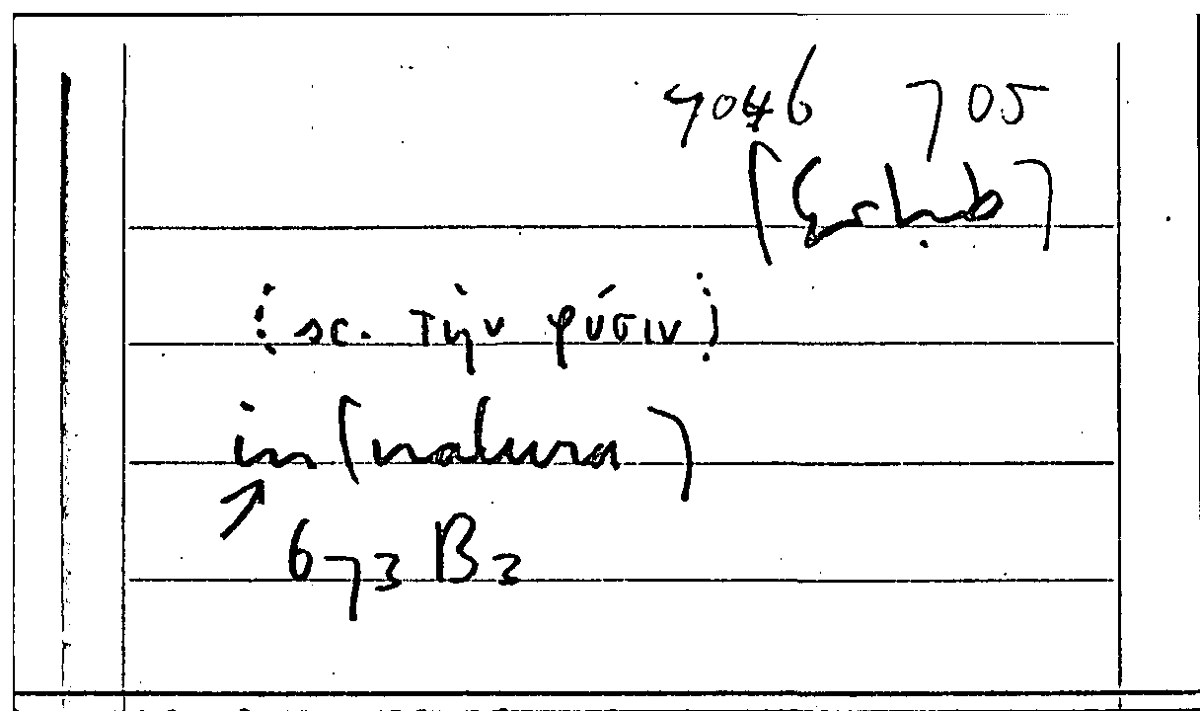 4046 705
(sc. τὴν φύσιν)
in (natura)
↗
673 B3